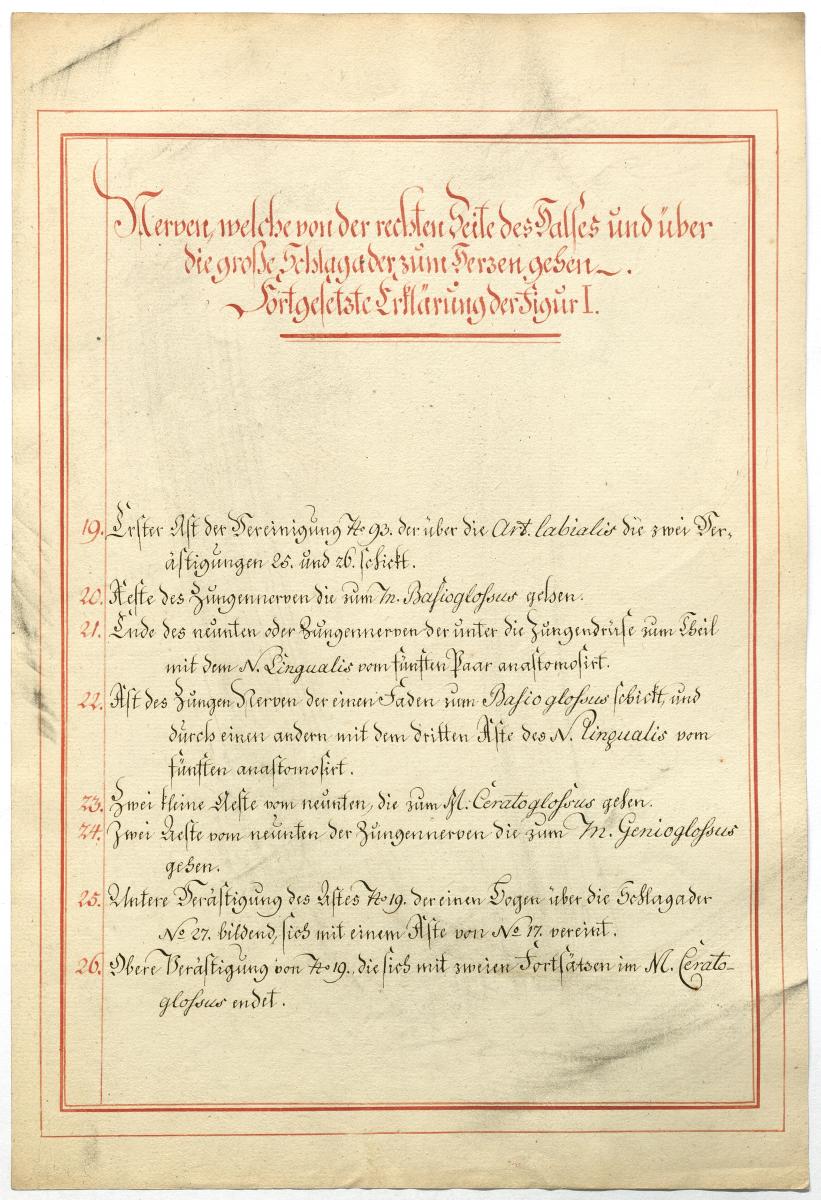 Nerven, welche von der rechten Seite des Halses und über
die große Schlagader zum Herzen gehen.
Fortgesetzte Erklärung der Figur I.
19. Erster Ast der Vereinigung No 93. der über die Art. labialis die zwei Ver-
ästigungen 25. und 26. schickt.
20. Aeste des Zungennerven die zum M. Basioglossus gehen.
21. Ende des neunten oder Zungennerven der unter die Zungendrüse zum Theil
mit dem N. Lingualis vom fünften Paar anastomosirt.
22. Ast des Zungen Nerven der einen Faden zum Basioglossus schickt, und
durch einen andern mit dem dritten Aste des N. Lingualis vom
fünften anastomosirt.
23. Zwei kleine Aeste vom neunten, die zum M. Ceratoglossus gehen.
24. Zwei Aeste vom neunten der Zungennerven die zum M. Genioglossus
gehen.
25. Untere Verästigung des Astes No 19. der einen Bogen über die Schlagader
No 27. bildend, sich mit einem Aste von No 17. vereint.
26. Obere Verästigung von No 19., die sich mit zweien Fortsätzen im M. Cerato-
glossus endet.